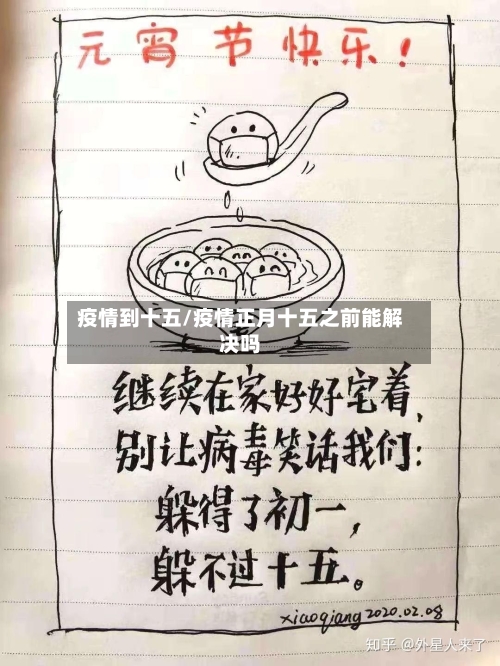 元宵节快乐！
疫情到十五/疫情正月十五之前能解
决吗
继续在家好好宅着，
别让病毒笑话我们：
躲得了初一，
躲不过十五。
xiaoqiang 2020.02.08
知乎 @外星人来了